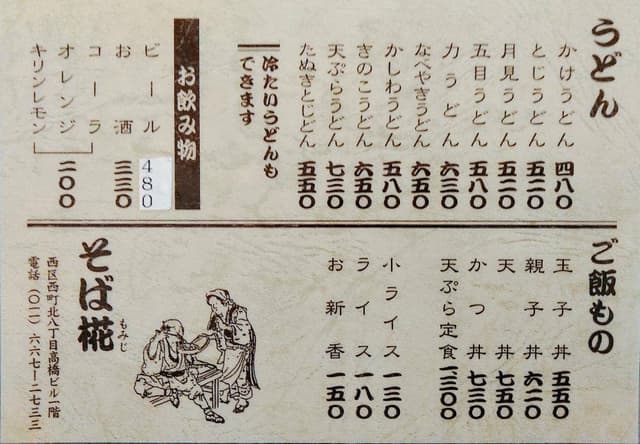 うどん
かけうどん 四八〇
とじうどん 五二〇
月見うどん 五二〇
五目うどん 五八〇
力うどん 六三〇
なべやきうどん 六五〇
かしわうどん 五八〇
きのこうどん 六五〇
天ぷらうどん 七三〇
たぬきとじどん 五五〇
冷たいうどんも
できます
お飲み物
ビール 480
お酒 三三〇
コーラ
オレンジ
キリンレモン
二〇〇
ご飯もの
玉子丼 五五〇
親子丼 六二〇
天丼 七五〇
かつ丼 七三〇
天ぷら定食 一三〇〇
小ライス 一三〇
ライス 一八〇
お新香 一五〇
そば椛
もみじ
西区西町北八丁目高橋ビル一階
電話(〇一一)六六七ー二七三三